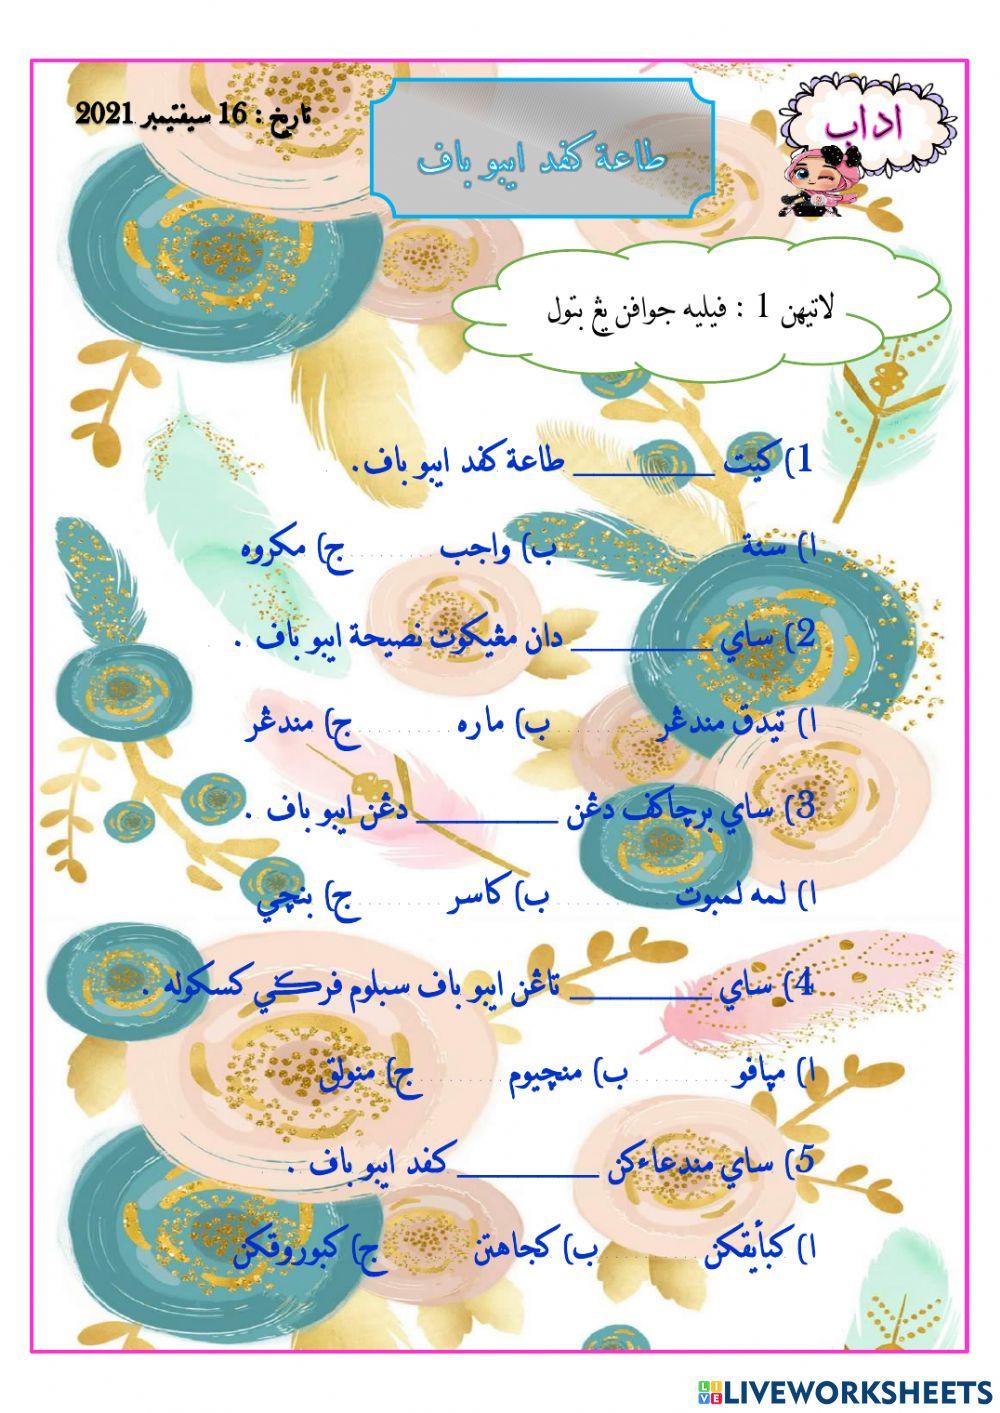 اداب
تاريخ : 16 سيفتيمبر 2021
طاعة كفد ايبو باف
لاتيهن 1 : فيليه جوافن يڠ بتول
1) كيت __________ طاعة كفد ايبو باف.
ا) سنة ب) واجب ج) مكروه
2) ساي __________ دان مڠيكوت نصيحة ايبو باف .
ا) تيدق مندڠر ب) ماره ج) مندڠر
3) ساي برچاكف دڠن __________ دڠن ايبو باف .
ا) لمه لمبوت ب) كاسر ج) بنچي
4) ساي __________ تاڠن ايبو باف سبلوم فرݢي كسكوله .
ا) مڽافو ب) منچيوم ج) منولق
5) ساي مندعاءكن __________ كفد ايبو باف .
ا) كبأيقكن ب) كجاهتن ج) كبوروقكن
LIVEWORKSHEETS